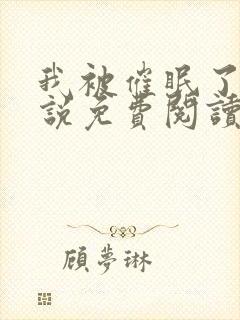 我被催眠了
說免費閱讀
顾夢琳